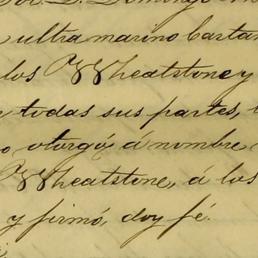 Por D. Domingo
ultra marino Cartan
los Wheatstone y
todas sus partes,
otorgó á nombre
Wheatstone, á los
y firmó, doy fé.